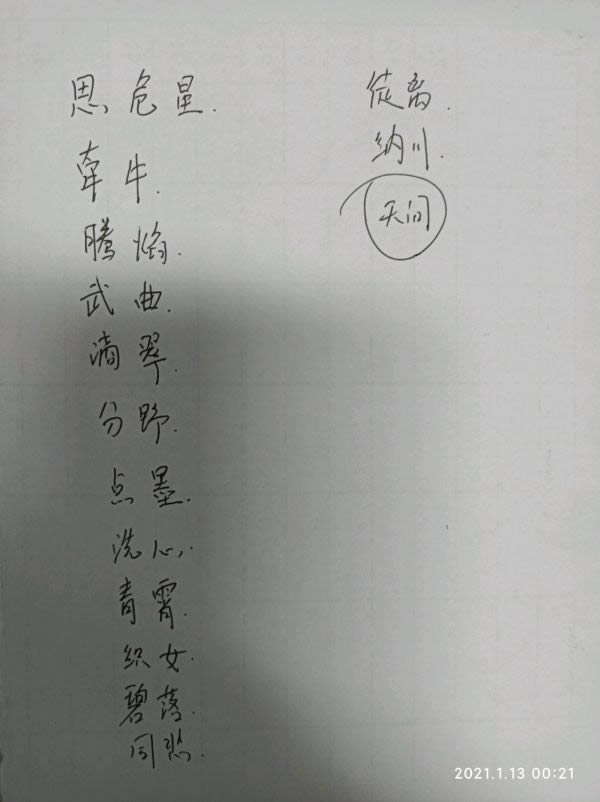 思危星.
牵牛.
腾焰.
武曲.
滴翠.
分野.
点墨.
洗心.
青霄.
织女.
碧落.
同悲.
徒离.
纳川.
天问
2021.1.13 00:21